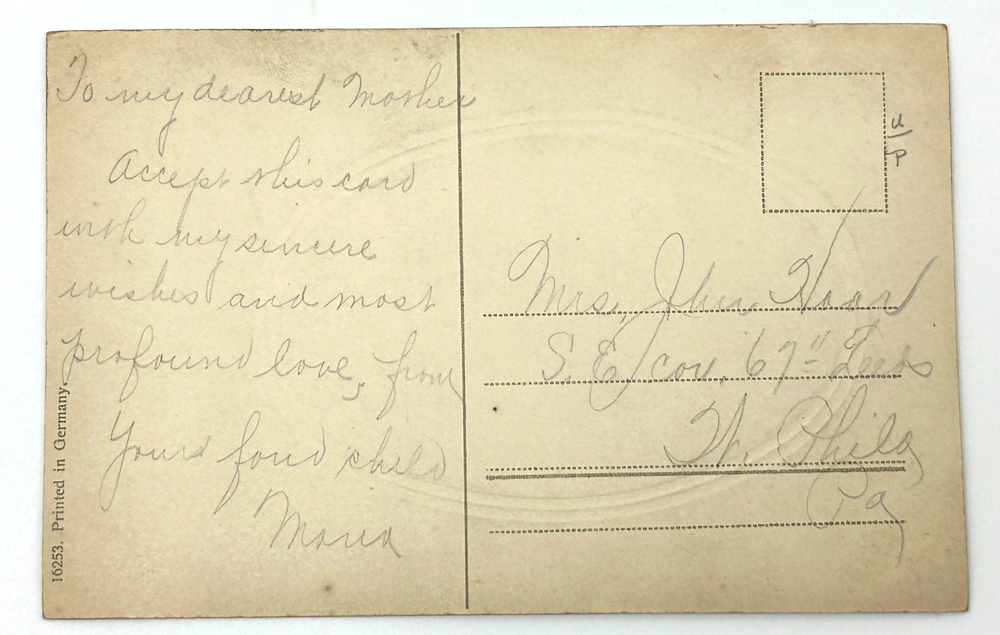 To my dearest Mother
Accept this card
with my sincere
wishes and most
profound love, from
Your fond child
Maria
16253. Printed in Germany.
U/P
Mrs. John Haar
S. E. cor. 67"
W. Phila
Pa